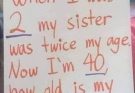 When I was
2 my sister
was twice my age.
Now I'm 40,
how old is my